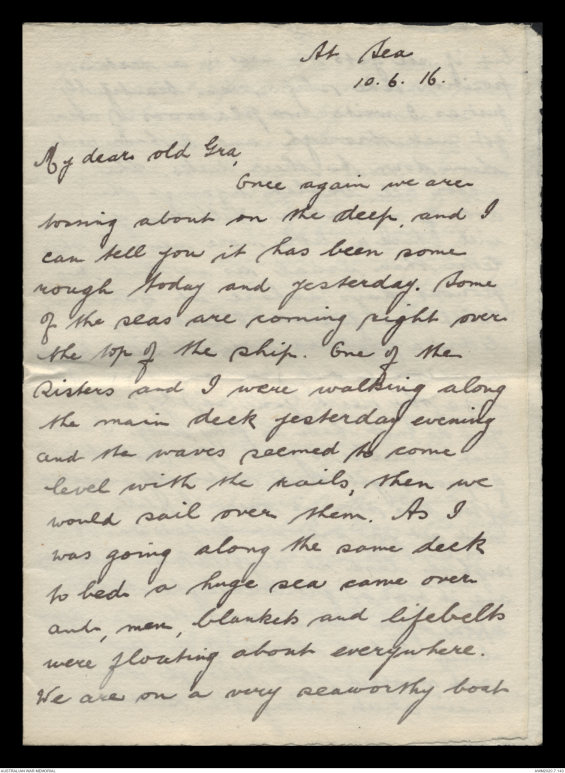 At Sea
10.6.16.
My dear old Gra,
Once again we are
tossing about on the deep, and I
can tell you it has been some
rough today and yesterday. Some
of the seas are coming right over
the top of the ship. One of the
Sisters and I were walking along
the main deck yesterday evening
and the waves seemed to come
level with the rails, then we
would sail over them. As I
was going along the same deck
to bed a huge sea came over
and, men, blankets and lifebelts
were floating about everywhere.
We are on a very seaworthy boat
AUSTRALIAN WAR MEMORIAL